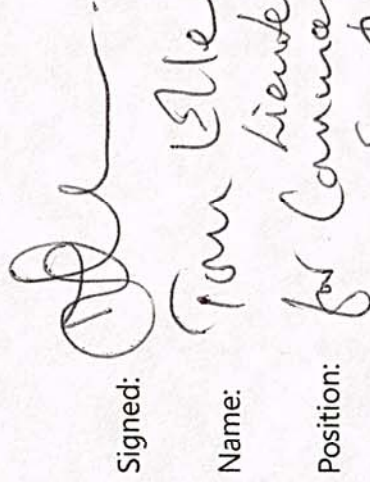 Signed:
Name: Tom Elle
Position: Lieute
for Comma